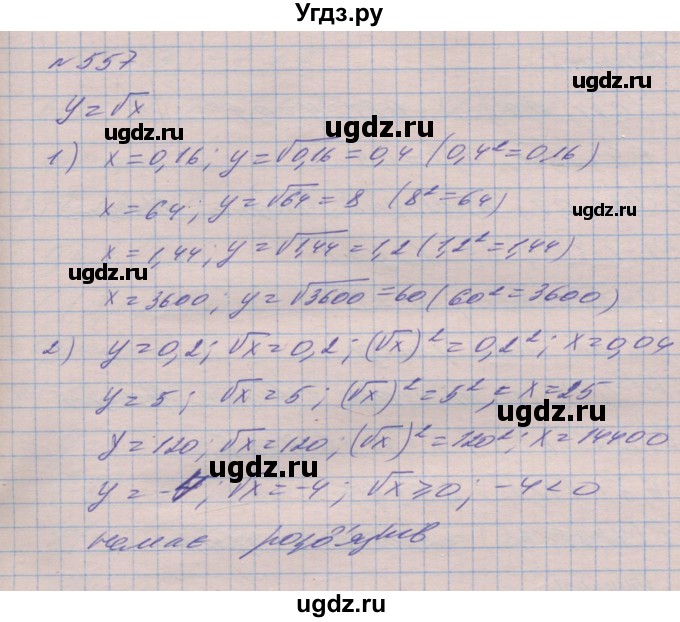 Угдз.ру
№ 557
ugdz.ru
y = √x
ugdz.ru ugdz.ru
1) x = 0,16; y = √0,16 = 0,4 (0,4² = 0,16)
x = 64; y = √64 = 8 (8² = 64)
ugdz.ru
x = 1,44; y = √1,44 = 1,2 (1,2² = 1,44)
ugdz.ru
x = 3600; y = √3600 = 60 (60² = 3600)
2) y = 0,2; √x = 0,2; (√x)² = 0,2²; x = 0,04
ugdz.ru
y = 5; √x = 5; (√x)² = 5²; x = 25
ugdz.ru
y = 120; √x = 120; (√x)² = 120²; x = 14400
ugdz.ru
y = -4; √x = -4; √x ≥ 0; -4 < 0
ugdz.ru
немає розв'язків
ugdz.ru
ugdz.ru